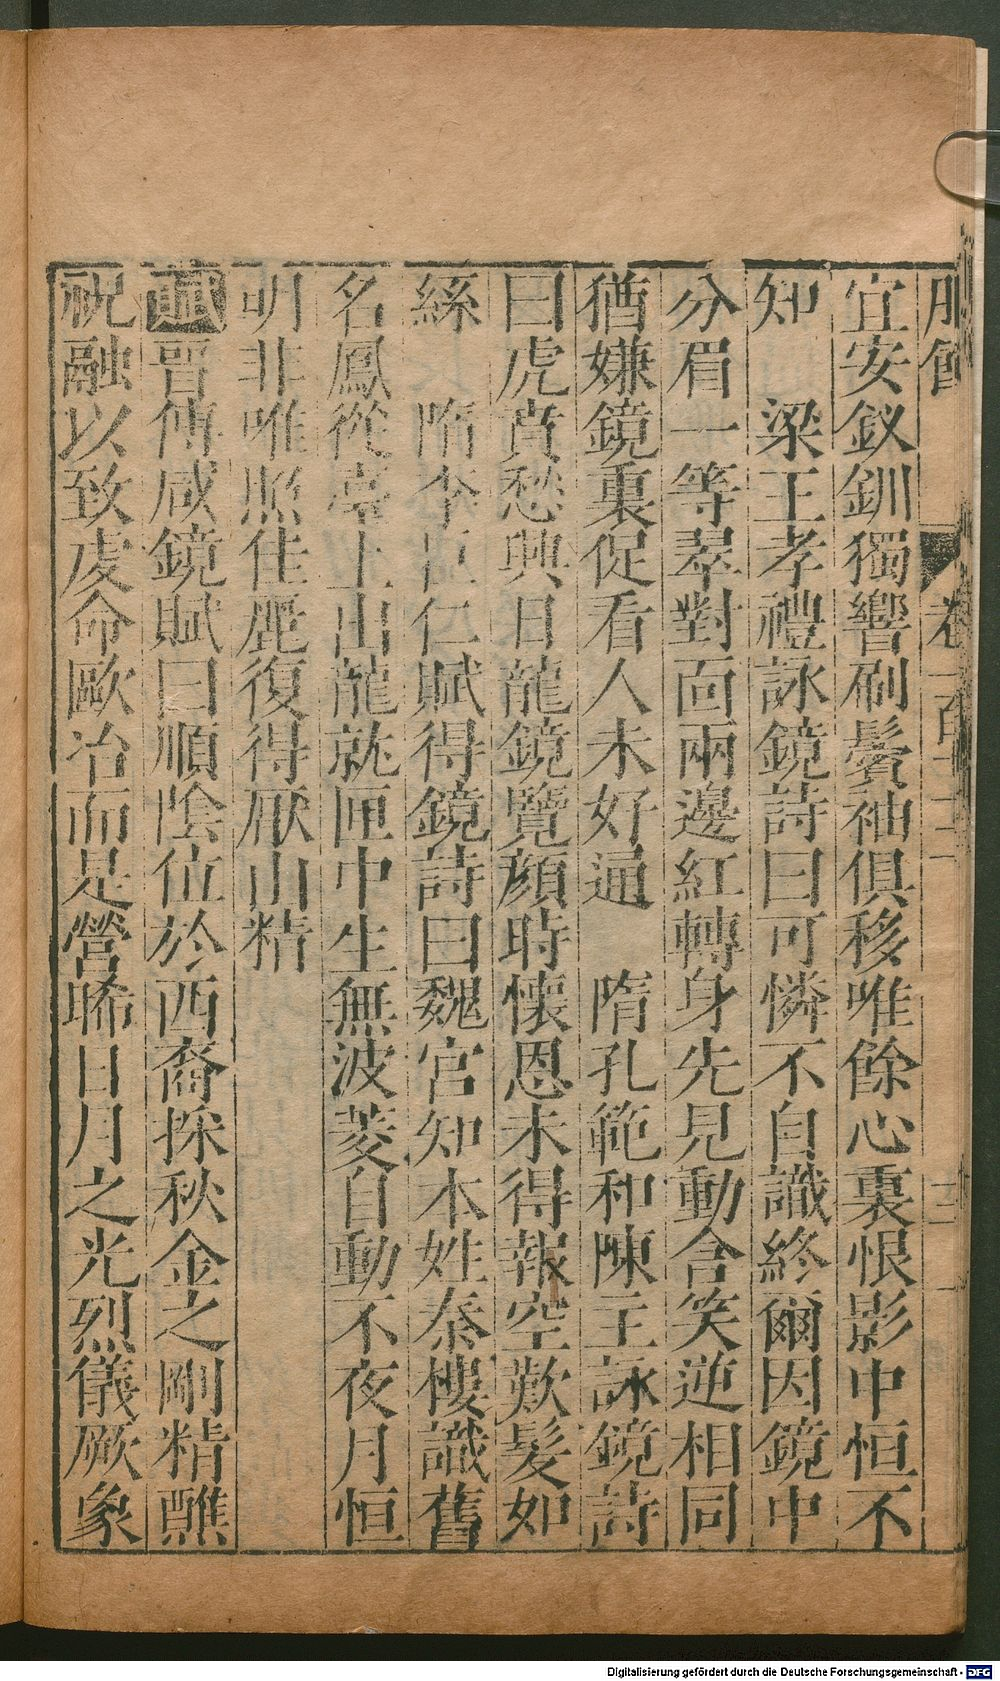 宜安釵釧獨響刷鬢袖俱移唯餘心裏恨影中恒不
知　梁王孝禮詠鏡詩曰可憐不自識終爾因鏡中
分眉一等翠對面兩邊紅轉身先見動含笑逆相同
猶嫌鏡裏促看人未好通　隋孔範和陳主詠鏡詩
曰虎賁愁興日龍鏡覽顏時懷恩未得報空歎髮如
絲　隋李巨仁賦得鏡詩曰魏宮知本姓秦樓識舊
名鳳從臺上出龍就匣中生無波菱自動不夜月恒
明非唯照佳麗復得厭山精
賦晉傅咸鏡賦曰順陰位於西裔採秋金之剛精醮
祝融以致虔命歐冶而是營晞日月之光烈儀厥象
Digitalisierung gefördert durch die Deutsche Forschungsgemeinschaft - DFG